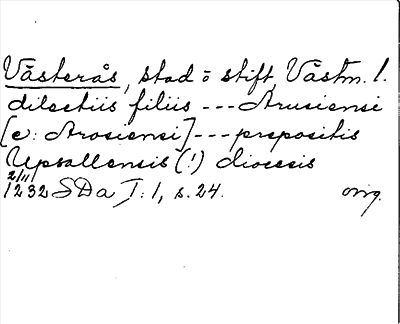 Västerås, stad o stift, Västm. l.
dilectis filiis --- Arusiensi
[c: Arosiensi] --- prepositis
Upsallensis (!) diocesis
2/11
1232 SDa I: 1, s. 24. orig.